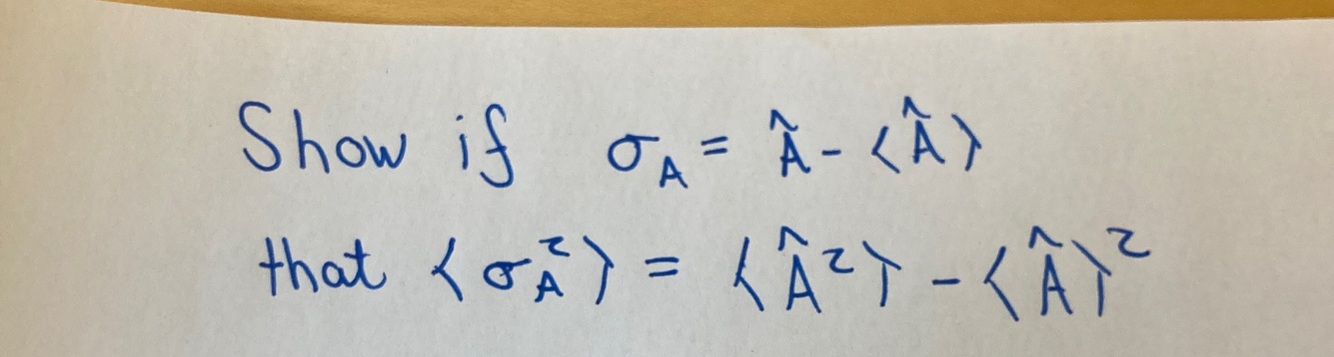 Show if σ_A = Â - ⟨Â⟩
that ⟨σ_A²⟩ = ⟨Â²⟩ - ⟨Â⟩²